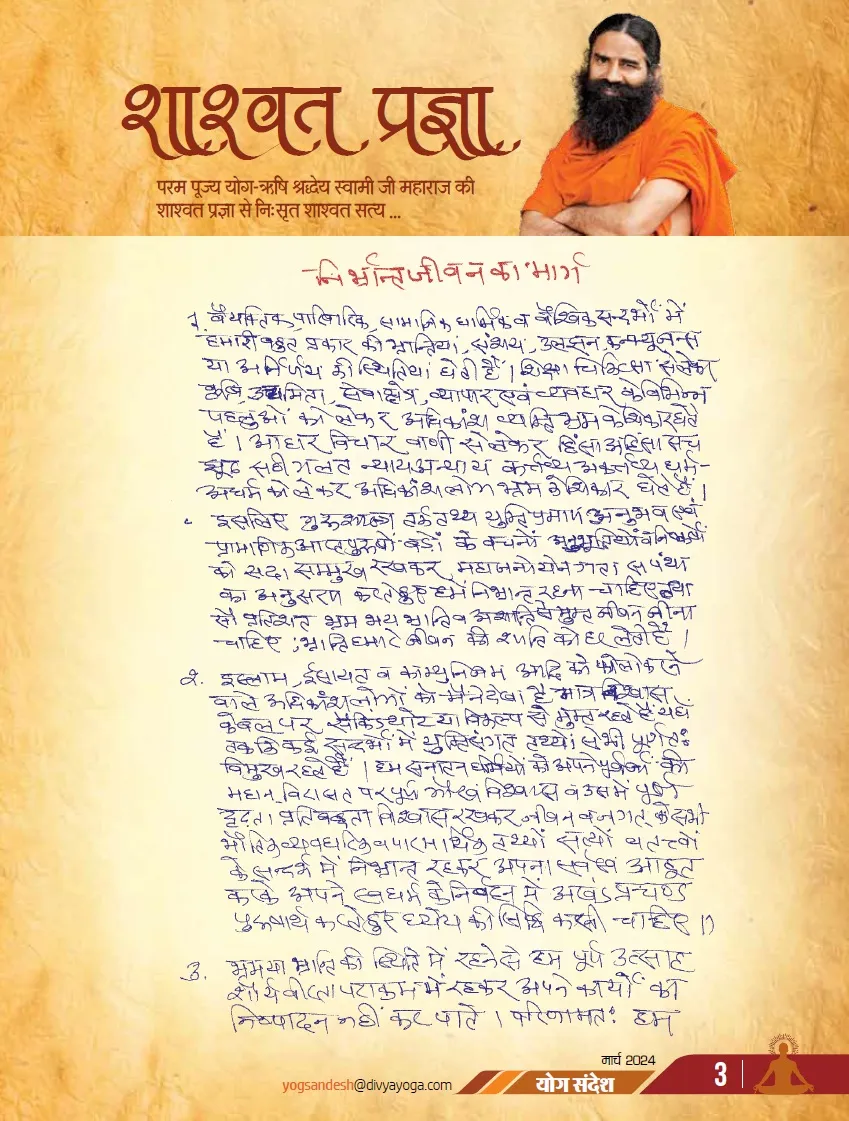 शाश्वत प्रज्ञा
परम पूज्य योग-ऋषि श्रद्धेय स्वामी जी महाराज की
शाश्वत प्रज्ञा से निःसृत शाश्वत सत्य ...
निर्भ्रान्त जीवन का मार्ग
1. वैयक्तिक, पारिवारिक, सामाजिक धार्मिक व वैश्विक सन्दर्भों में
हमारी बहुत प्रकार की भ्रान्तियां, संशय, उलझन, कन्फ्यूजन्स
या अनिर्णय की स्थितियां होती हैं। शिक्षा चिकित्सा से लेकर
कृषि, उद्यमिता, सेवाक्षेत्र, व्यापार एवं व्यवहार के विभिन्न
पहलुओं को लेकर अधिकांश व्यक्ति भ्रम के शिकार होते
हैं। आहार विचार वाणी से लेकर हिंसा अहिंसा सच
झूठ सही गलत न्याय अन्याय कर्त्तव्य अकर्त्तव्य धर्म-
अधर्म को लेकर अधिकांश लोग भ्रम के शिकार होते हैं।
इसलिए गुरु शास्त्र तर्क तथ्य युक्ति प्रमाण अनुभव एवं
प्रामाणिक आप्तपुरुषों बड़ों के वचनों अनुभूतियों व निष्कर्षों
को सदा सम्मुख रखकर, महाजनो येन गतः स पंथा
का अनुसरण करते हुए हमें निर्भ्रान्त रहना चाहिए तथा
सौ प्रतिशत भ्रम भय भ्रान्ति व अशान्ति से मुक्त जीवन जीना
चाहिए; भ्रान्ति हमारे जीवन की शान्ति को हर लेती है।
2. इस्लाम, ईसायत व काम्युनिज्म आदि को फोलो करने
वाले अधिकांश लोगों को मैंने देखा है मात्र विश्वास
के बल पर सैकिंड थोट या विकल्प से मुक्त रहते हैं यहाँ
तक कि कई सन्दर्भों में युक्तिसंगत तथ्यों से भी पूर्णतः
विमुख रहते हैं। हम सनातन धर्मियों को अपने पूर्वजों की
महान विरासत पर पूर्ण गौरव विश्वास व उसमें पूर्ण
दृढ़ता प्रतिबद्धता विश्वास रखकर जीवन व जगत् के सभी
भौतिक व्यवहारिक व पारमार्थिक तथ्यों सत्यों व तत्त्वों
के सन्दर्भ में निर्भ्रान्त रहकर अपना सर्वस्व आहूत
करके अपने स्वधर्म के निर्वहन में अखंड प्रचण्ड
पुरुषार्थ करते हुए ध्येय की सिद्धि करनी चाहिए।
3. भ्रम या भ्रान्ति की स्थिति में रहने से हम पूर्ण उत्साह
शौर्य वीरता पराक्रम में रहकर अपने कार्यों का
निष्पादन नहीं कर पाते। परिणामतः हम
मार्च 2024
yogsandesh@divyayoga.com
योग संदेश
3